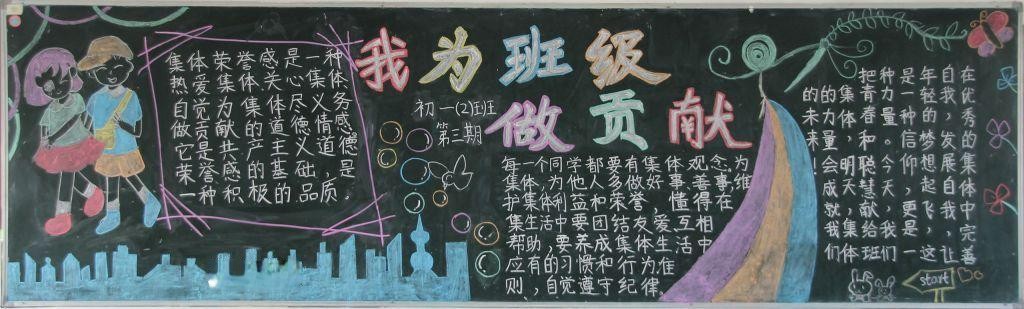 我为班级
做贡献
初一(2)班
第三期
集体荣誉感是一种
热爱集体关心集体
自觉为集体尽义务
做贡献的道德情感
它是共产主义道德
荣誉感的基础，是
一种积极的品质。
每一个同学都要有集体观念，为
集体，为他人多做好事，善事，维
护集体荣誉，懂得在
集生活中要团结友爱，互相
帮助，要养成集体生活中
应有的习惯和行为准
则，自觉遵守纪律。
在优秀的集体中完善
自我，发展自我，让
年轻的梦想起飞，这
是一种信仰，更是一
种力量。今天，我们
把青春和聪慧献给班
集体，明天，集体
的力量会成就我们
的未来！
start